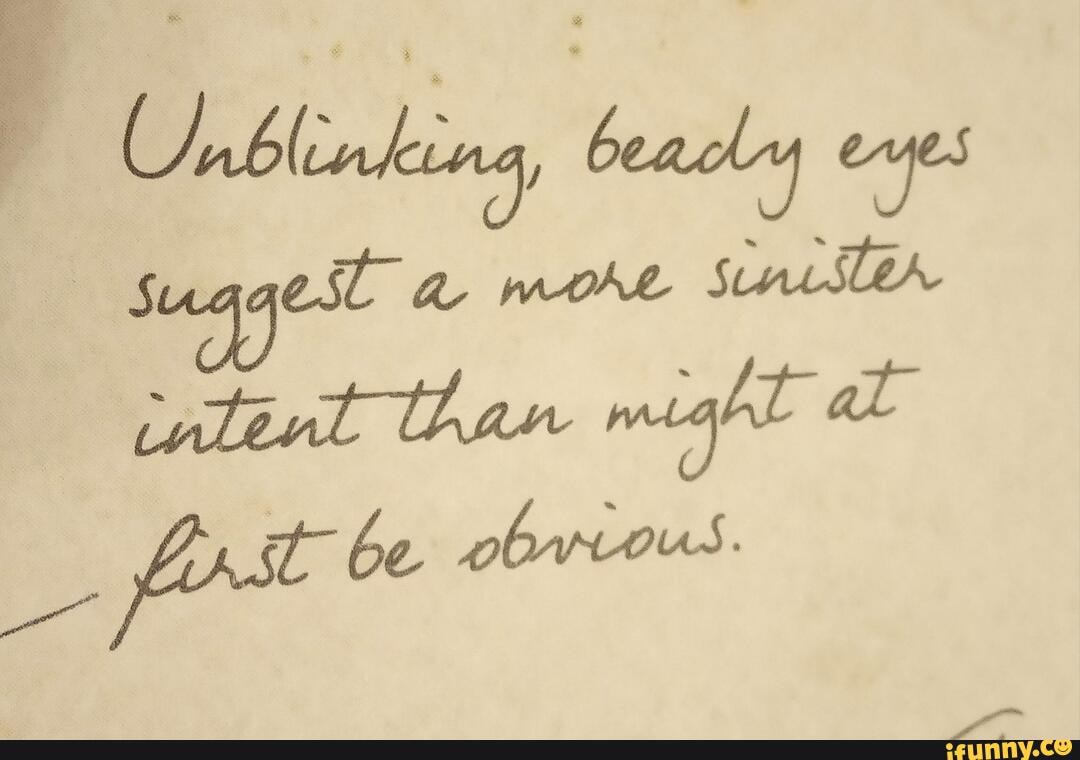 Unblinking, beady eyes
suggest a more sinister
intent than might at
first be obvious.
ifunny.co